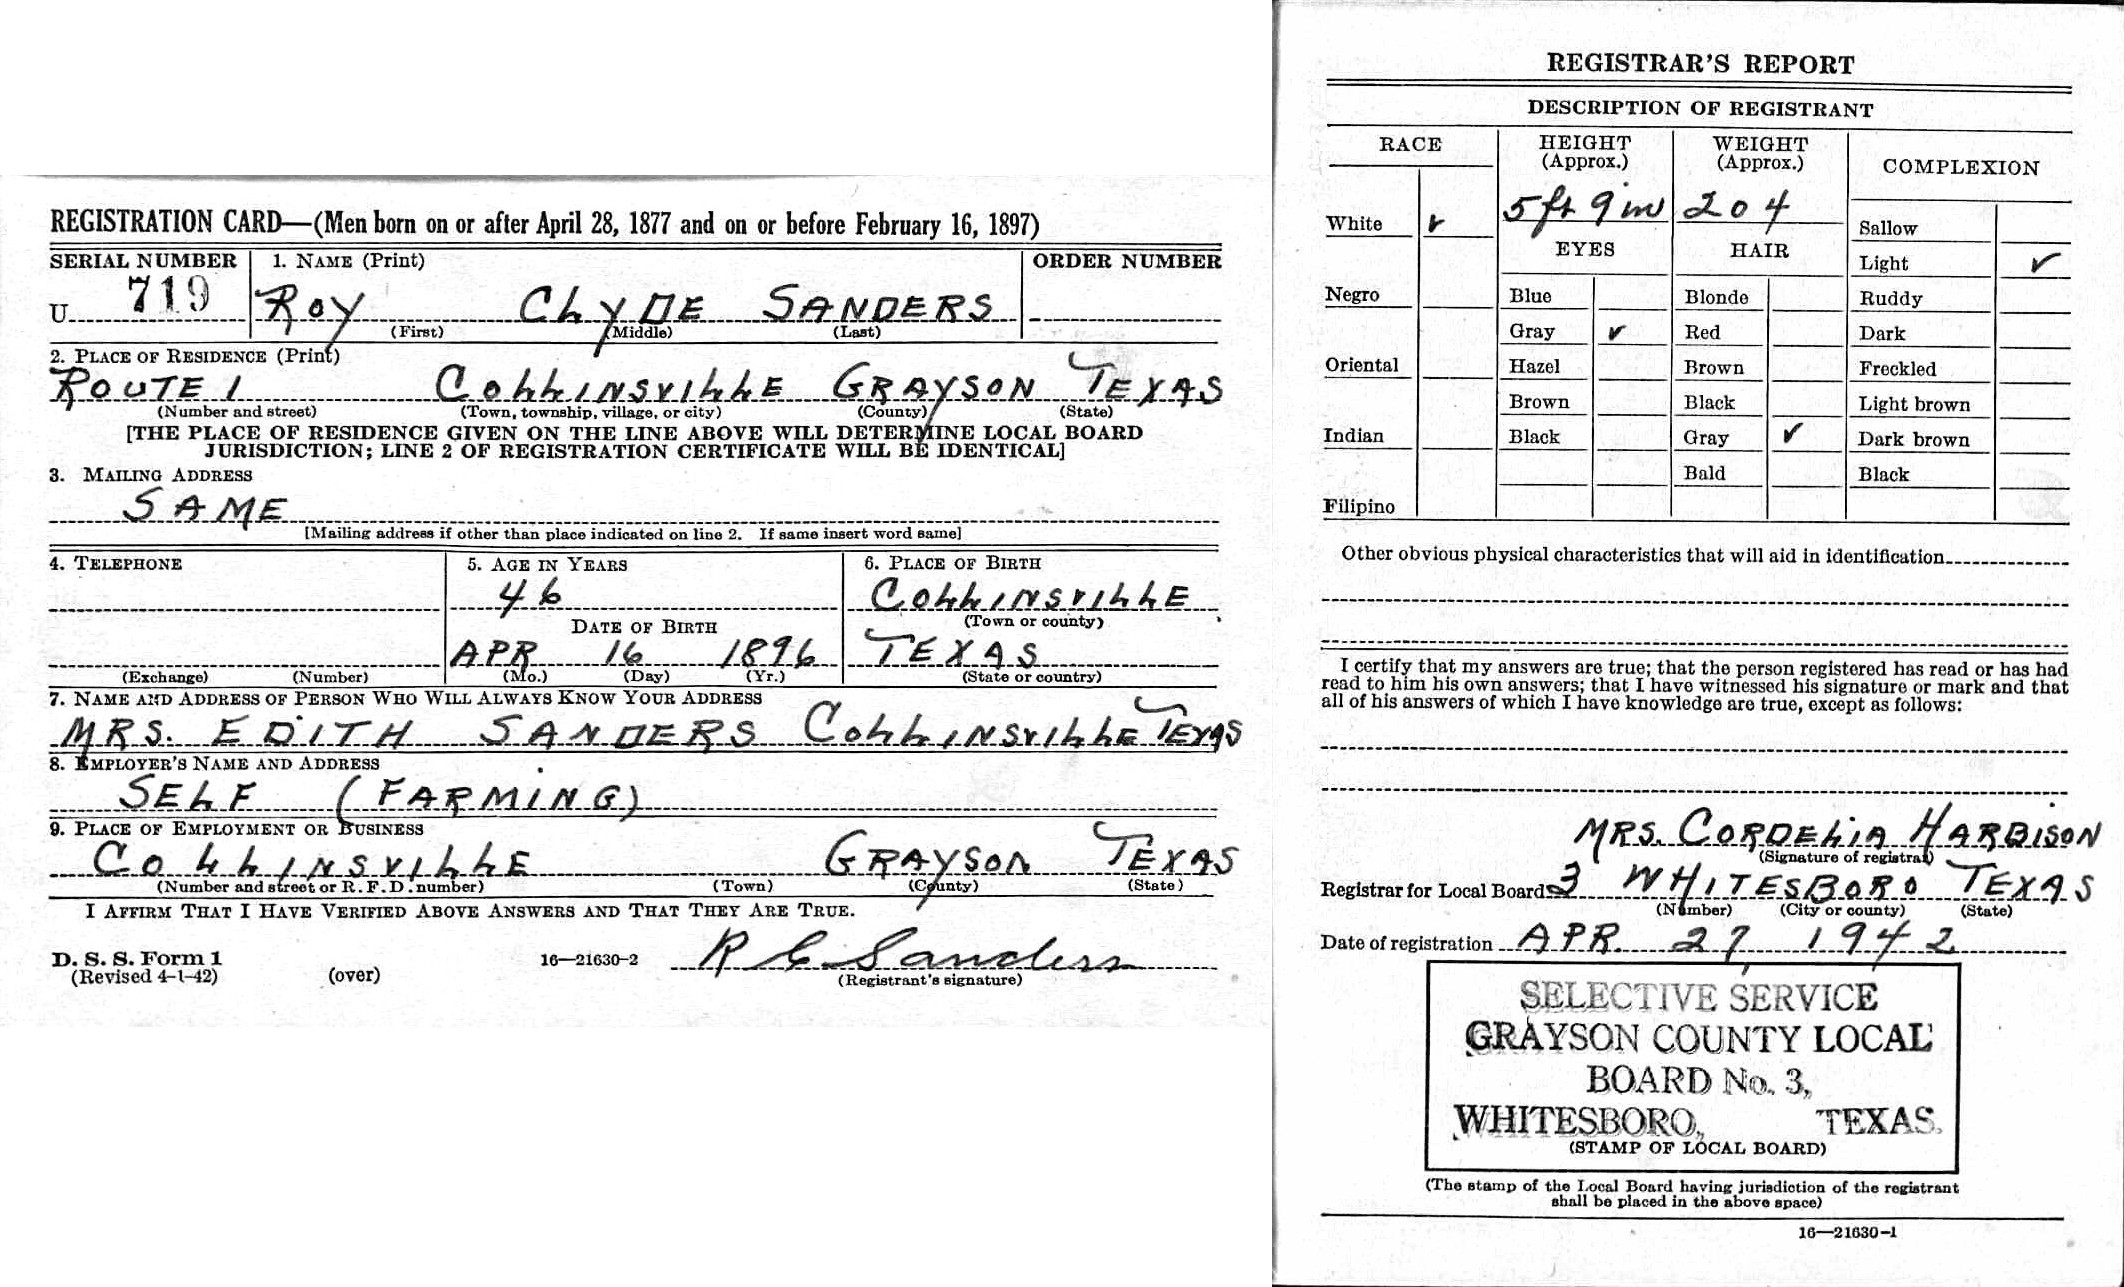 REGISTRATION CARD—(Men born on or after April 28, 1877 and on or before February 16, 1897)
SERIAL NUMBER 1. NAME (Print) ORDER NUMBER
U 719 ROY CLYDE SANDERS
(First) (Middle) (Last)
2. PLACE OF RESIDENCE (Print)
ROUTE 1 COLLINSVILLE GRAYSON TEXAS
(Number and street) (Town, township, village, or city) (County) (State)
[THE PLACE OF RESIDENCE GIVEN ON THE LINE ABOVE WILL DETERMINE LOCAL BOARD
JURISDICTION; LINE 2 OF REGISTRATION CERTIFICATE WILL BE IDENTICAL]
3. MAILING ADDRESS
SAME
[Mailing address if other than place indicated on line 2. If same insert word same]
4. TELEPHONE 5. AGE IN YEARS 6. PLACE OF BIRTH
46 COLLINSVILLE
DATE OF BIRTH (Town or county)
APR 16 1896 TEXAS
(Exchange) (Number) (Mo.) (Day) (Yr.) (State or country)
7. NAME AND ADDRESS OF PERSON WHO WILL ALWAYS KNOW YOUR ADDRESS
MRS. EDITH SANDERS COLLINSVILLE TEXAS
8. EMPLOYER'S NAME AND ADDRESS
SELF (FARMING)
9. PLACE OF EMPLOYMENT OR BUSINESS
COLLINSVILLE GRAYSON TEXAS
(Number and street or R. F. D. number) (Town) (County) (State)
I AFFIRM THAT I HAVE VERIFIED ABOVE ANSWERS AND THAT THEY ARE TRUE.
D. S. S. Form 1 16—21630-2 R C Sanders
(Revised 4-1-42) (over) (Registrant's signature)
REGISTRAR'S REPORT
DESCRIPTION OF REGISTRANT
RACE HEIGHT (Approx.) WEIGHT (Approx.) COMPLEXION
White ✓ 5 ft 9 in 204 Sallow
EYES HAIR Light ✓
Negro Blue Blonde Ruddy
Gray ✓ Red Dark
Oriental Hazel Brown Freckled
Brown Black Light brown
Indian Black Gray ✓ Dark brown
Bald Black
Filipino
Other obvious physical characteristics that will aid in identification
I certify that my answers are true; that the person registered has read or has had
read to him his own answers; that I have witnessed his signature or mark and that
all of his answers of which I have knowledge are true, except as follows:
MRS. CORDELIA HARBISON
(Signature of registrar)
Registrar for Local Board 3 WHITESBORO TEXAS
(Number) (City or county) (State)
Date of registration APR. 27, 1942
SELECTIVE SERVICE
GRAYSON COUNTY LOCAL
BOARD No. 3,
WHITESBORO, TEXAS.
(STAMP OF LOCAL BOARD)
(The stamp of the Local Board having jurisdiction of the registrant
shall be placed in the above space)
16—21630-1